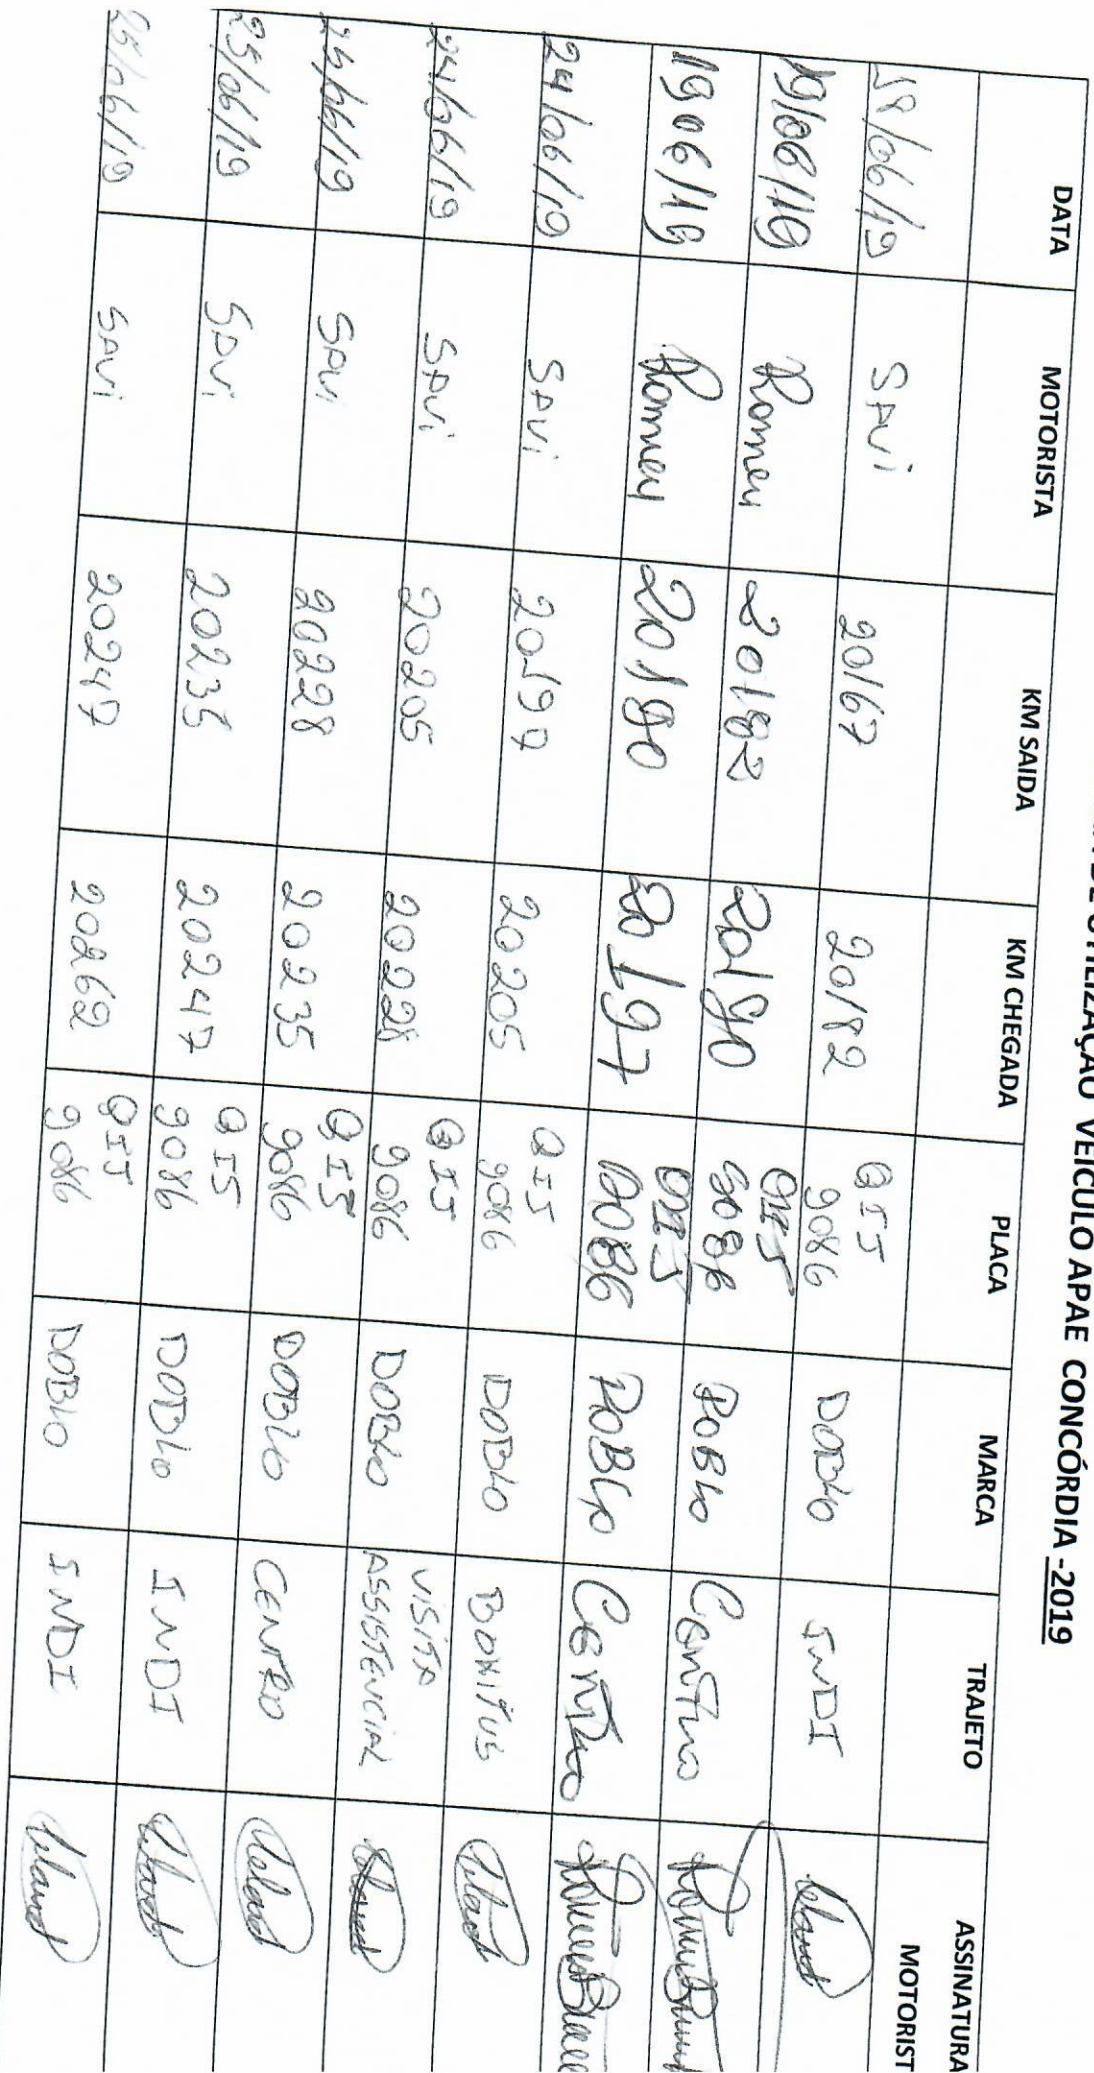 UTILIZAÇÃO VEICULO APAE CONCÓRDIA -2019
DATA MOTORISTA KM SAIDA KM CHEGADA PLACA MARCA TRAJETO ASSINATURA MOTORIST
18/06/19 SAVI 20167 20182 QIJ 9086 DOBLO INDI
19/06/19 Romeu 20182 20190 QIJ 9086 DOBLO Centro
19 06/19 Romeu 20190 20197 QIJ 9086 DOBLO Centro
24/06/19 SAVI 20197 20205 QIJ 9086 DOBLO BONITUS
24/06/19 SAVI 20205 20228 QIJ 9086 DOBLO VISITA ASSISTENCIAL
25/06/19 SAVI 20228 20235 QIJ 9086 DOBLO CENTRO
25/06/19 SAVI 20235 20247 QIJ 9086 DOBLO INDI
25/06/19 SAVI 20247 20262 QIJ 9086 DOBLO INDI